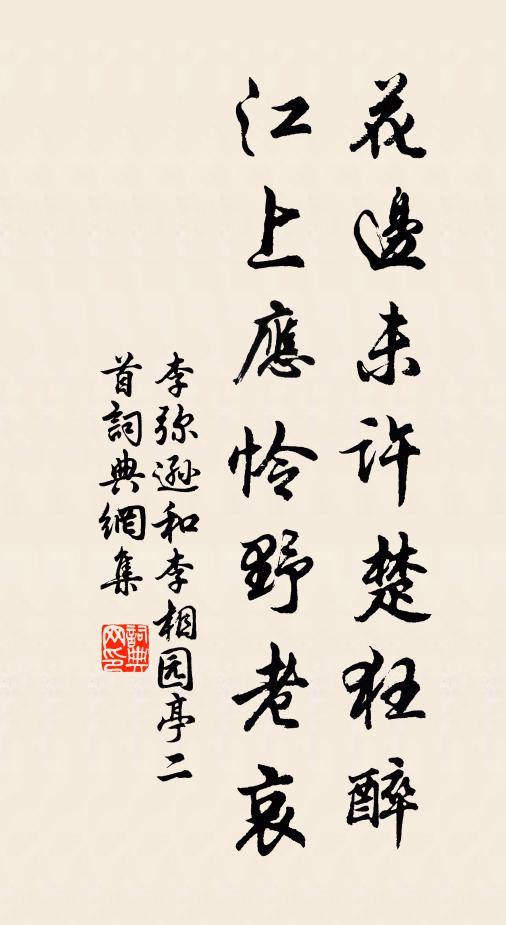 花邊未許楚狂醉
江上應怜野老哀
李弥遜和李相园亭二
首詞典網集
詞典
网印